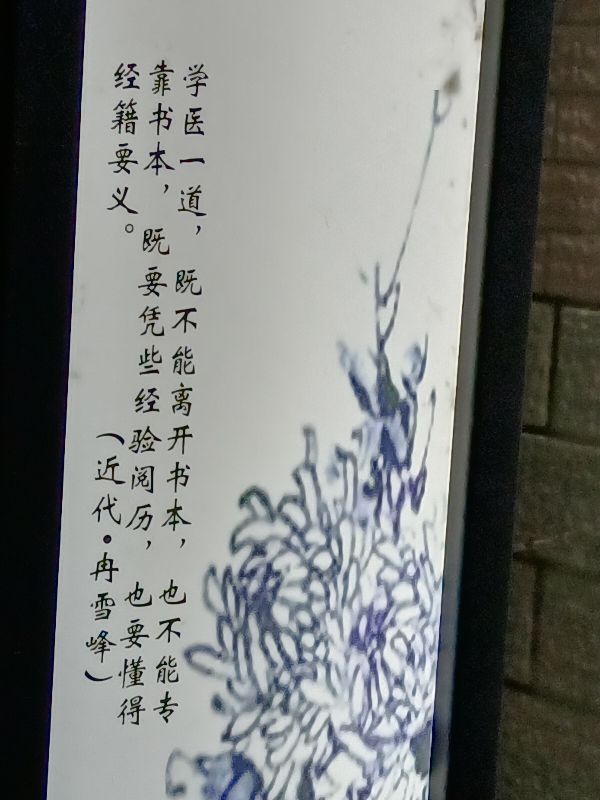 学医一道，既不能离开书本，也不能专
靠书本，既要凭些经验阅历，也要懂得
经籍要义。
（近代·冉雪峰）